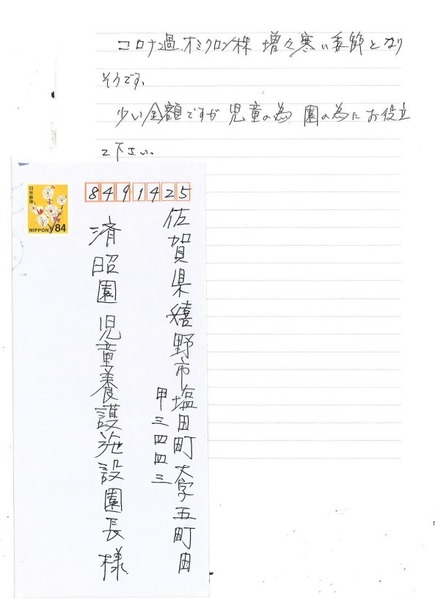 コロナ過、オミクロン株 増々寒い季節となり
そうです。
少い金額ですが 児童の為 園の為にお役立
て下さい。
日本郵便
NIPPON ¥84
8491425
佐賀県嬉野市塩田町大字五町田
甲三四四三
済昭園児童養護施設園長様